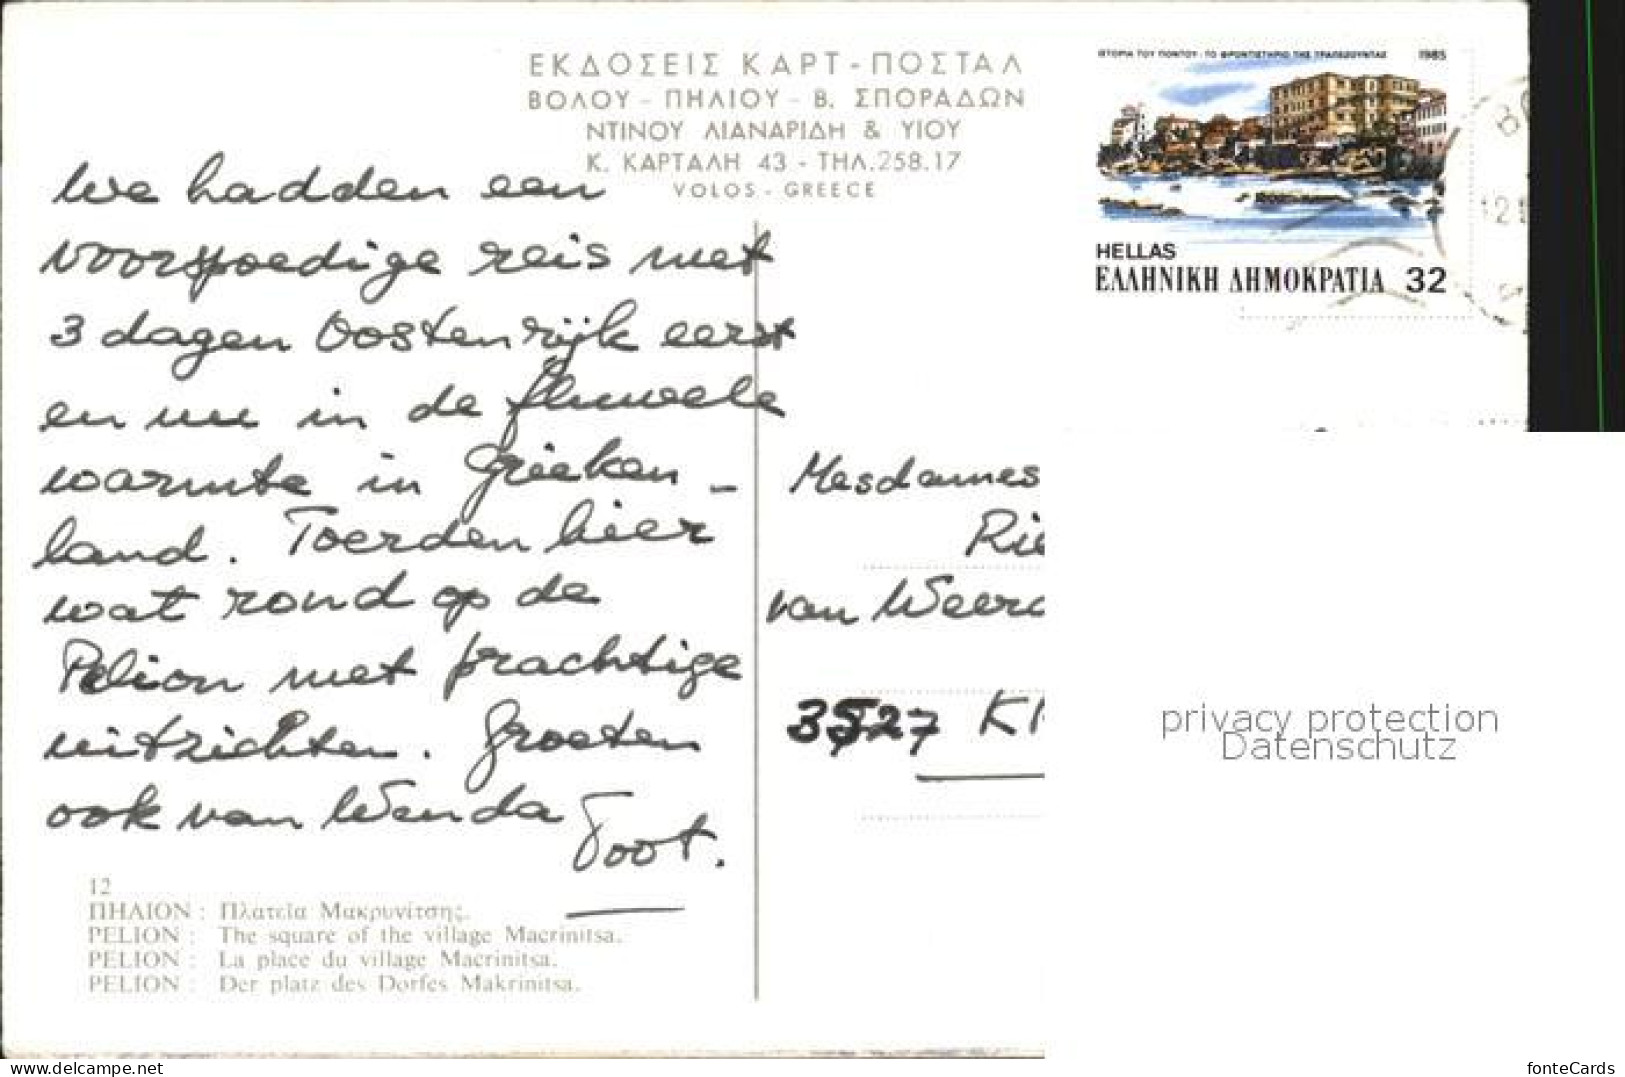 ΕΚΔΟΣΕΙΣ ΚΑΡΤ-ΠΟΣΤΑΛ
ΒΟΛΟΥ - ΠΗΛΙΟΥ - Β. ΣΠΟΡΑΔΩΝ
ΝΤΙΝΟΥ ΛΙΑΝΑΡΙΔΗ & ΥΙΟΥ
Κ. ΚΑΡΤΑΛΗ 43 - ΤΗΛ.258.17
VOLOS - GREECE
We hadden een
voorspoedige reis met
3 dagen Oostenrijk eerst
en nu in de fluwele
warmte in Grieken-
land. Toerden hier
wat rond op de
Pelion met prachtige
uitzichten. Groeten
ook van Wenda
Toot.
12
ΠΗΛΙΟΝ : Πλατεῖα Μακρυνίτσης.
PELION : The square of the village Macrinitsa.
PELION : La place du village Macrinitsa.
PELION : Der platz des Dorfes Makrinitsa.
ΙΣΤΟΡΙΑ ΤΟΥ ΠΟΝΤΟΥ · ΤΟ ΦΡΟΝΤΙΣΤΗΡΙΟ ΤΗΣ ΤΡΑΠΕΖΟΥΝΤΑΣ 1985
HELLAS
ΕΛΛΗΝΙΚΗ ΔΗΜΟΚΡΑΤΙΑ 32
Mesdames
Rie
van Weerd
3527 K
privacy protection
Datenschutz
www.delcampe.net
fonteCards